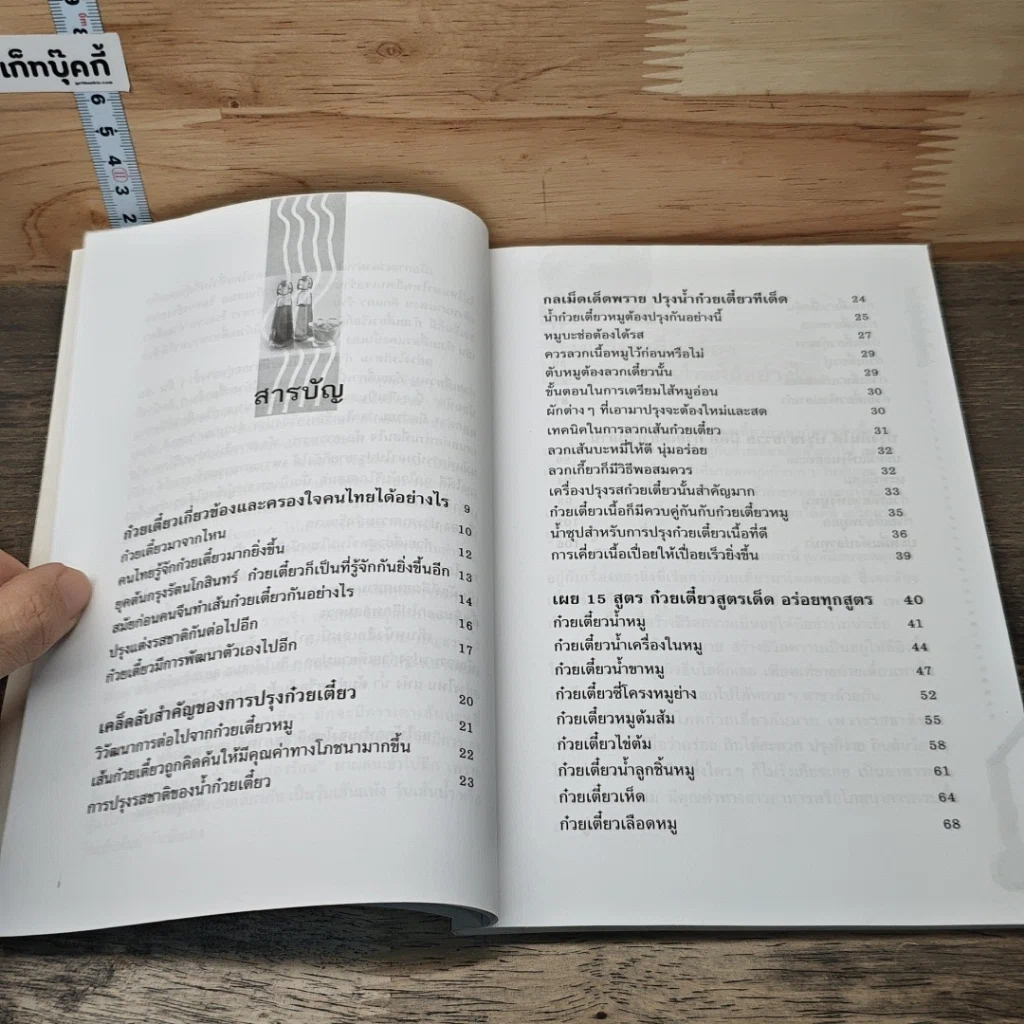 เก็ทบุ๊คกี้
6
5
4
3
2
สารบัญ
ก๋วยเตี๋ยวเกี่ยวข้องและครองใจคนไทยได้อย่างไร 9
ก๋วยเตี๋ยวมาจากไหน 10
คนไทยรู้จักก๋วยเตี๋ยวมากยิ่งขึ้น 12
ยุคต้นกรุงรัตนโกสินทร์ ก๋วยเตี๋ยวก็เป็นที่รู้จักกันยิ่งขึ้นอีก 13
สมัยก่อนคนจีนทำเส้นก๋วยเตี๋ยวกันอย่างไร 14
ปรุงแต่งรสชาติกันต่อไปอีก 16
ก๋วยเตี๋ยวมีการพัฒนาตัวเองไปอีก 17
เคล็ดลับสำคัญของการปรุงก๋วยเตี๋ยว 20
วิวัฒนาการต่อไปจากก๋วยเตี๋ยวหมู 21
เส้นก๋วยเตี๋ยวถูกคิดค้นให้มีคุณค่าทางโภชนามากขึ้น 22
การปรุงรสชาติของน้ำก๋วยเตี๋ยว 23
กลเม็ดเด็ดพราย ปรุงน้ำก๋วยเตี๋ยวทีเด็ด 24
น้ำก๋วยเตี๋ยวหมูต้องปรุงกันอย่างนี้ 25
หมูบะช่อต้องได้รส 27
ควรลวกเนื้อหมูไว้ก่อนหรือไม่ 29
ตับหมูต้องลวกเดี๋ยวนั้น 29
ขั้นตอนในการเตรียมไส้หมูอ่อน 30
ผักต่างๆ ที่เอามาปรุงจะต้องใหม่และสด 30
เทคนิคในการลวกเส้นก๋วยเตี๋ยว 31
ลวกเส้นบะหมี่ให้ดี นุ่มอร่อย 32
ลวกเกี๊ยวก็มีวิธีพอสมควร 32
เครื่องปรุงรสก๋วยเตี๋ยวนั้นสำคัญมาก 33
ก๋วยเตี๋ยวเนื้อก็มีควบคู่กันกับก๋วยเตี๋ยวหมู 35
น้ำซุปสำหรับการปรุงก๋วยเตี๋ยวเนื้อที่ดี 36
การเคี่ยวเนื้อเปื่อยให้เปื่อยเร็วยิ่งขึ้น 39
เผย 15 สูตร ก๋วยเตี๋ยวสูตรเด็ด อร่อยทุกสูตร 40
ก๋วยเตี๋ยวน้ำหมู 41
ก๋วยเตี๋ยวน้ำเครื่องในหมู 44
ก๋วยเตี๋ยวน้ำขาหมู 47
ก๋วยเตี๋ยวซี่โครงหมูย่าง 52
ก๋วยเตี๋ยวหมูต้มส้ม 55
ก๋วยเตี๋ยวไข่ต้ม 58
ก๋วยเตี๋ยวน้ำลูกชิ้นหมู 61
ก๋วยเตี๋ยวเห็ด 64
ก๋วยเตี๋ยวเลือดหมู 68